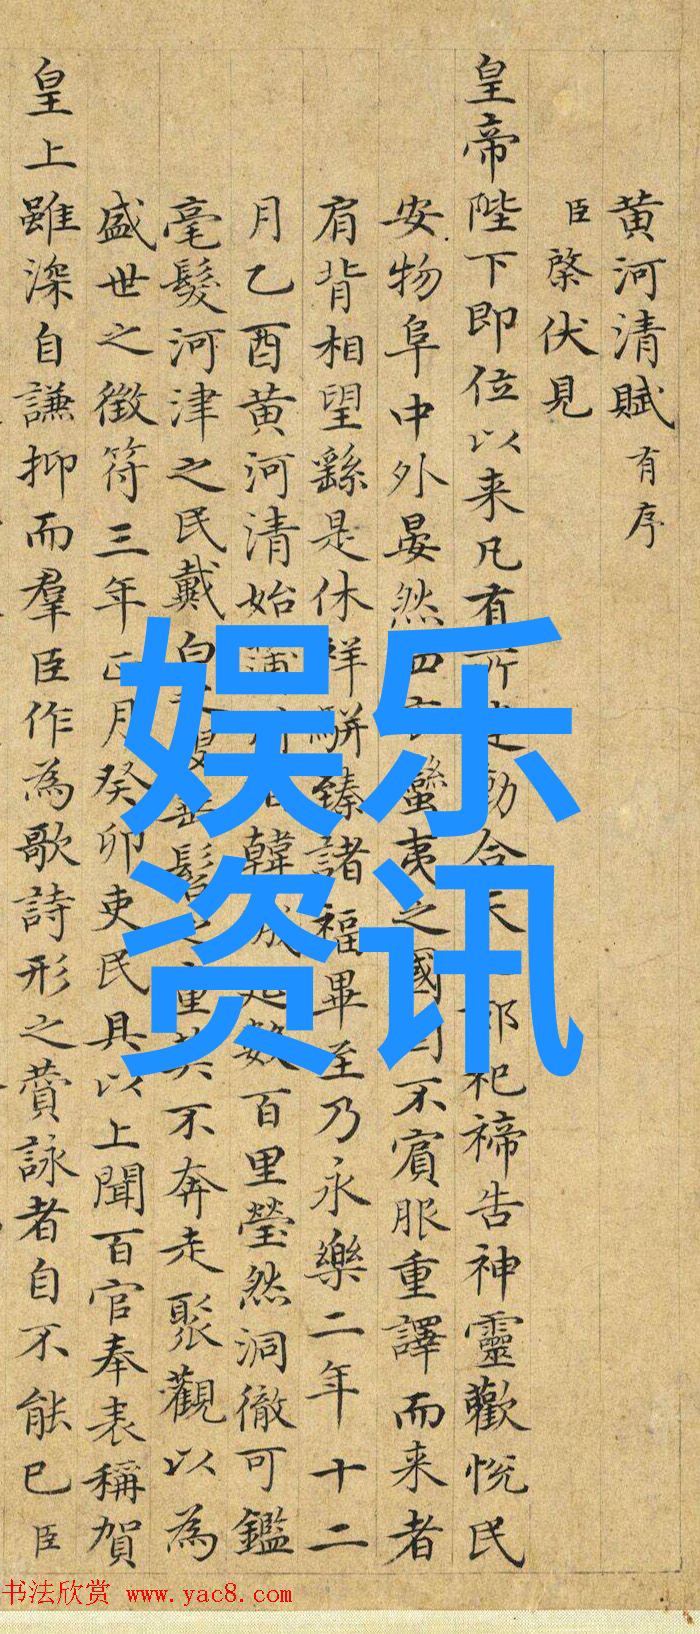 黄河清賦 有序
臣棨伏見
皇帝陛下即位以来凡有所建動合天郊祀禘告神靈歡悅民
安物阜中外晏然四方蠻夷之國罔不賓服重譯而来者
肩背相望繇是休祥駢臻諸福畢至乃永樂二年十二
月乙酉黄河清始蒲州韓城延數百里瑩然洞徹可鑑
毫髮河津之民戴白之叟垂髫之童莫不奔走聚觀以為
盛世之徵符三年正月癸卯吏民具以上聞百官奉表稱賀
皇上雖深自謙抑而羣臣作為歌詩形之賛詠者自不能已臣
娱乐
资讯
书法欣赏 www.yac8.com